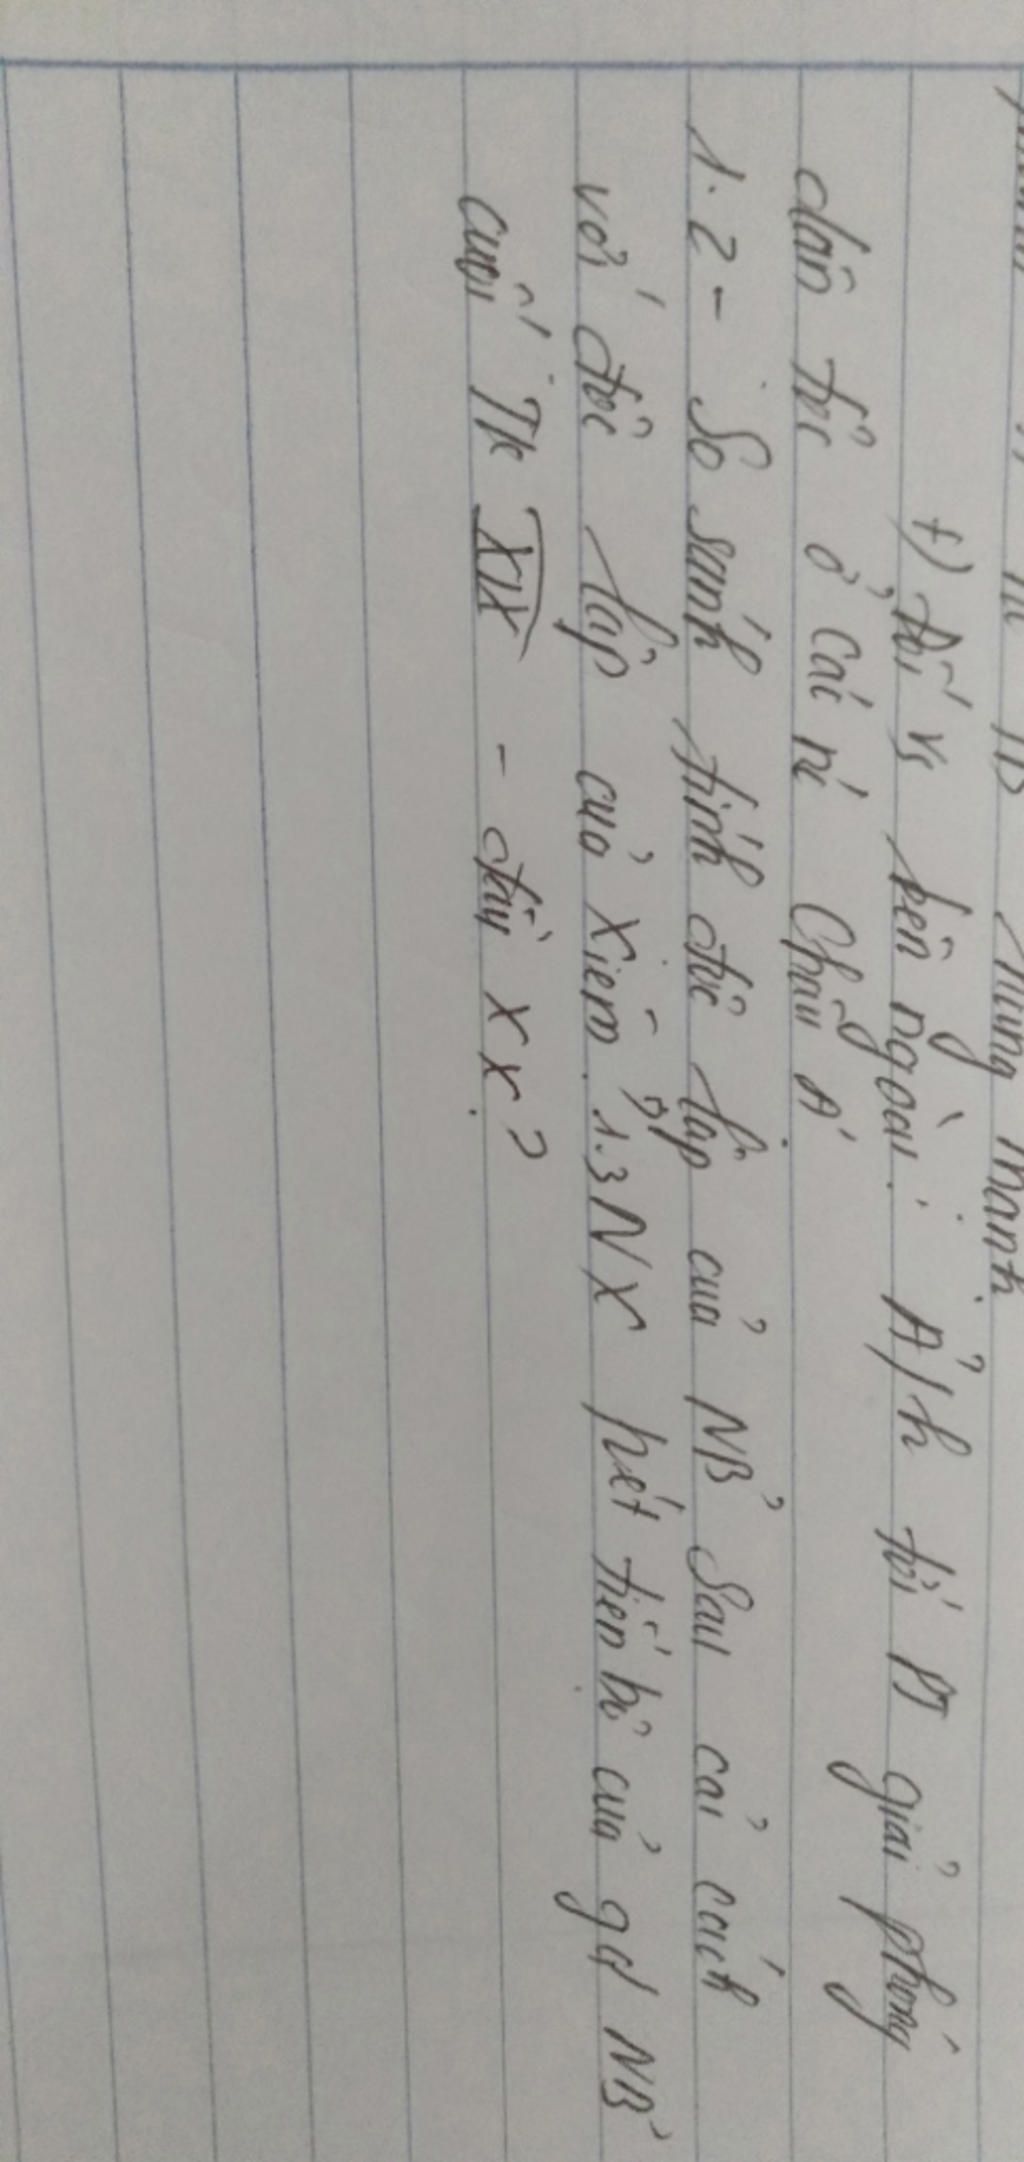 Trung thành
+) Đối vs bên ngoài: Ả/h tới PT giải phóng
dân tộc ở các nc Châu Á
1.2 - So sánh tính độc lập của NB sau cải cách
với độc lập của Xiêm. 1.3 NX hết tiến bộ của gd NB
cuối TK XIX - đầu XX?